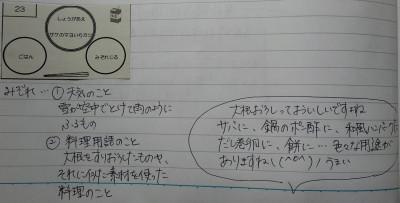 23
しょうがあえ
サケのマヨいもカツ
ごはん
みぞれじる
みぞれ…① 天気のこと
雪が空中でとけて雨のように
ふるもの
② 料理用語のこと
大根をすりおろしたものや、
それに似た素材を使った
料理のこと
大根おろしっておいしいですよね
サバに、鍋のポン酢に、和風ハンバーグに
だし巻卵に、餅に…色々な用途が
ありますね！(^o^)ノうまい